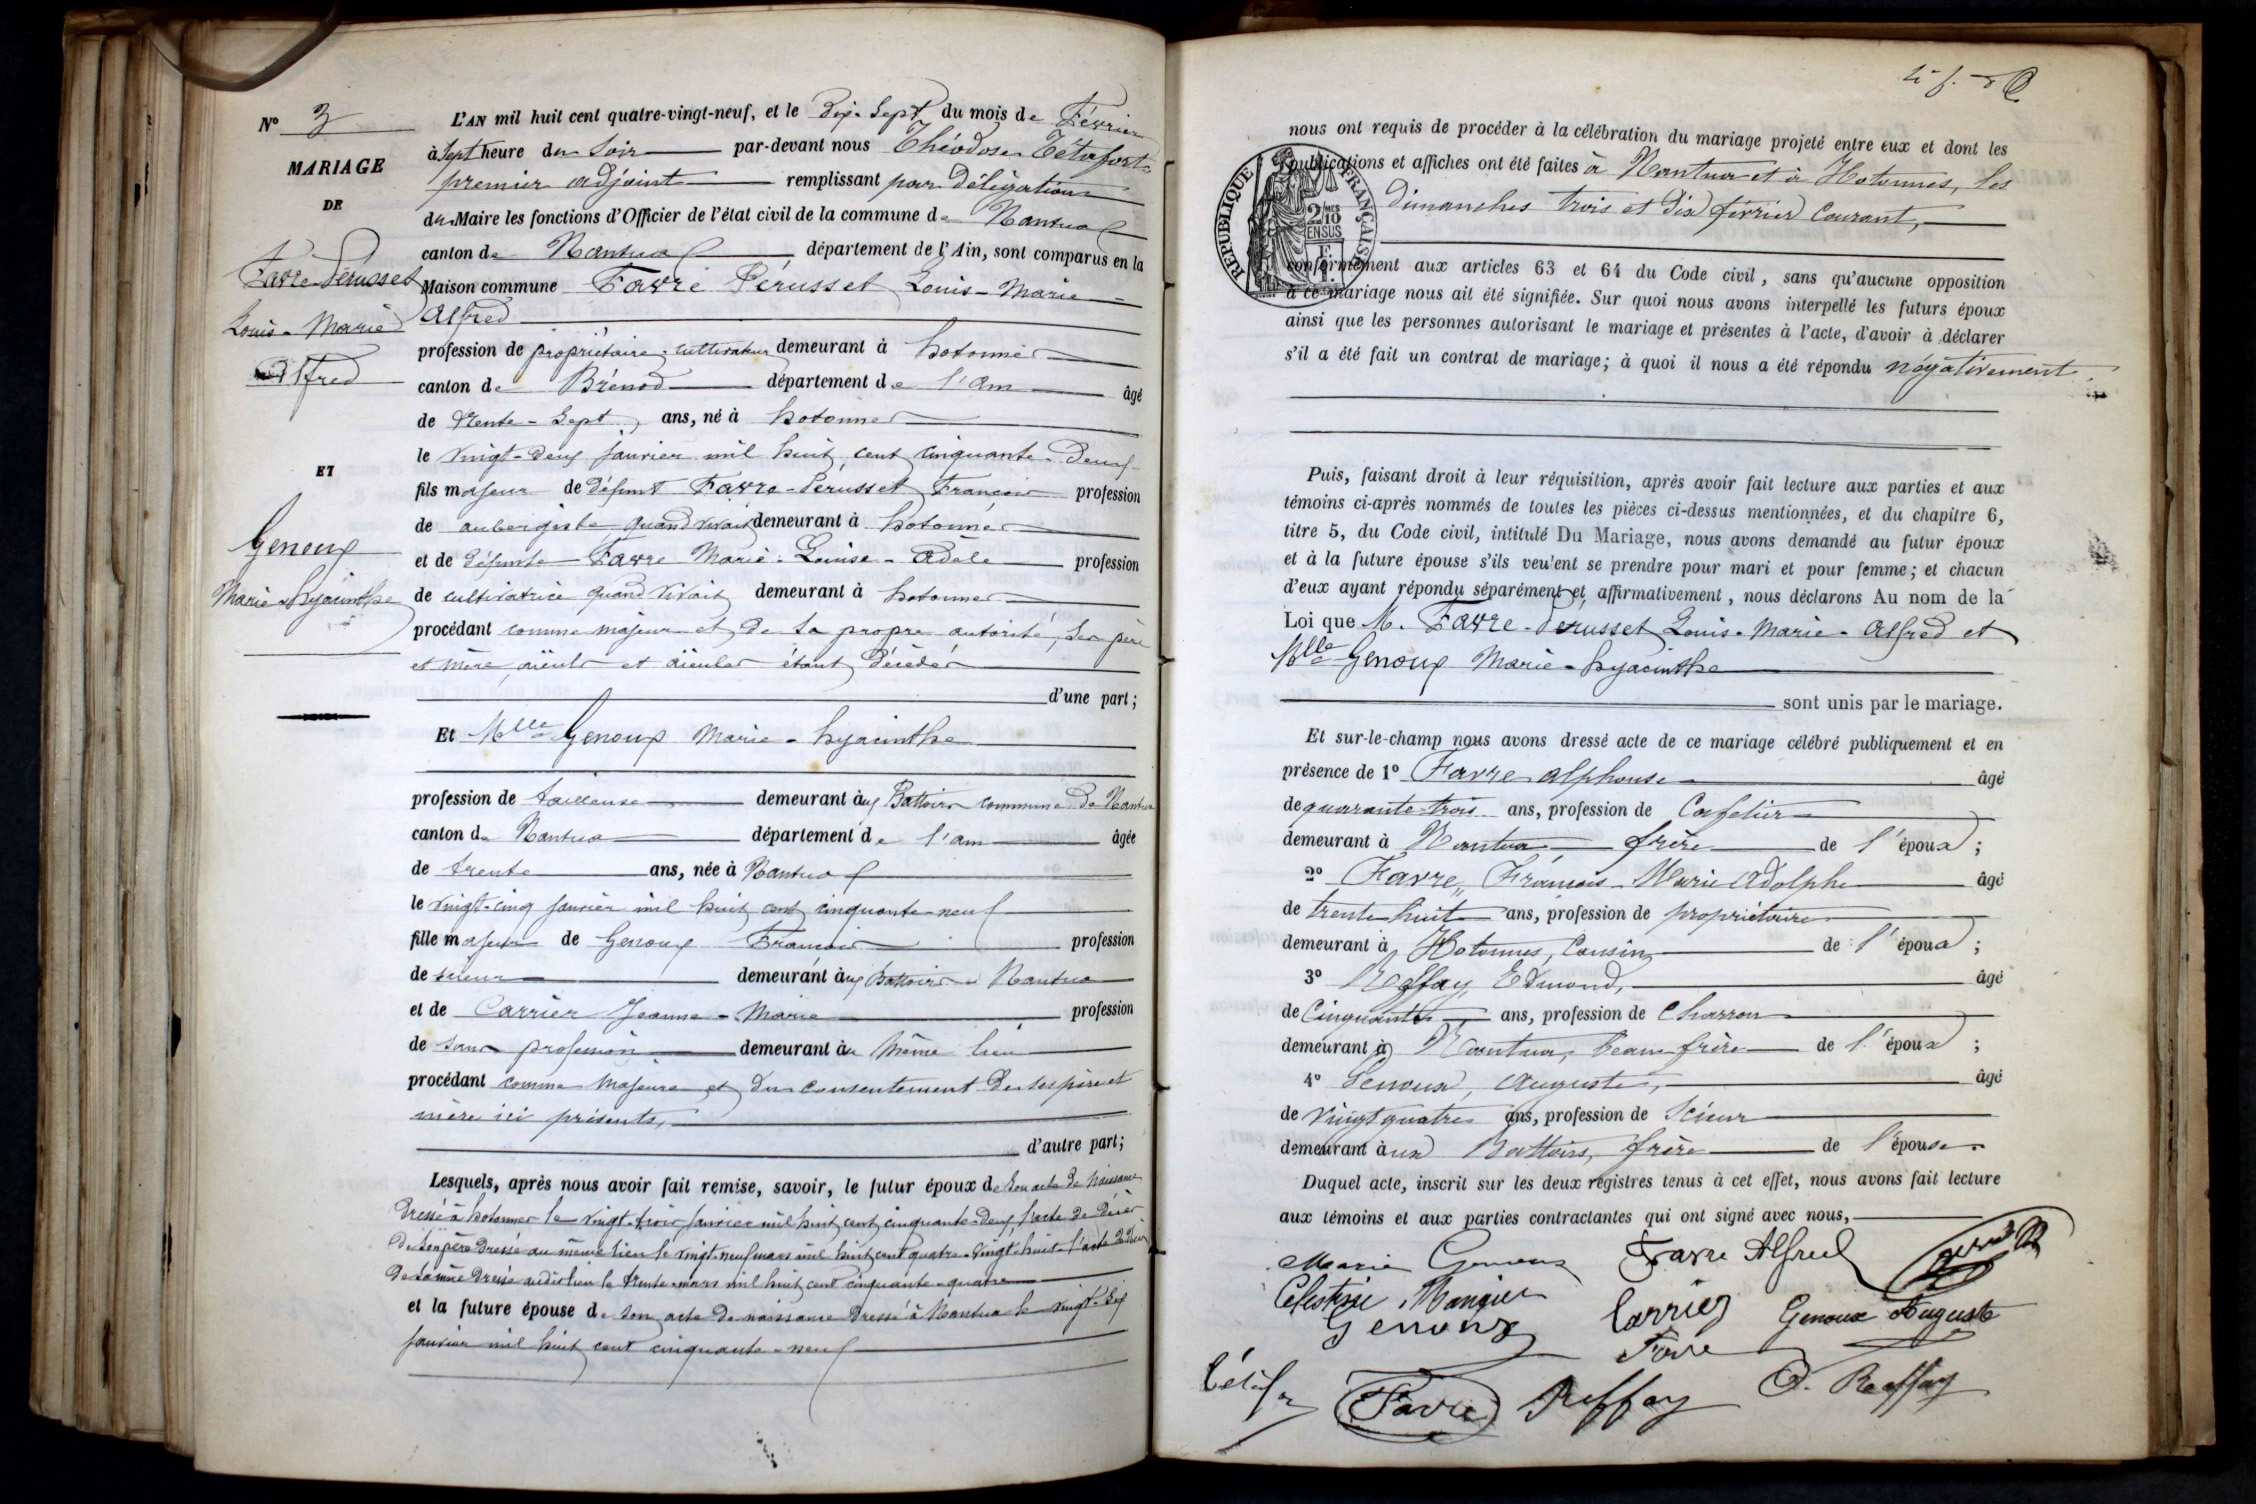 N° 3
MARIAGE
DE
Favre-Pérusset
Louis-Marie
Alfred
ET
Genoux
Marie-hyacinthe
L'AN mil huit cent quatre-vingt-neuf, et le Dix-Sept du mois de Février
à Sept heure du Soir par-devant nous Théodose Tétafort
premier adjoint remplissant par délégation
du Maire les fonctions d'Officier de l'état civil de la commune de Nantua
canton de Nantua département de l'Ain, sont comparus en la
Maison commune Favre Pérusset Louis-Marie-
Alfred
profession de propriétaire-cultivateur demeurant à hotonnes
canton de Brénod département de l'ain âgé
de trente-Sept ans, né à hotonnes
le vingt-deux janvier mil huit cent cinquante-deux
fils majeur de défunt Favre-Pérusset François profession
de aubergiste quand vivait demeurant à hotonnes
et de défunte Favre Marie-Louise-Adèle profession
de cultivatrice quand vivait demeurant à hotonnes
procédant comme majeur et de sa propre autorité, ses père
et mère, aïeuls et aïeules étant décédés
d'une part;
Et Mlle Genoux Marie-hyacinthe
profession de tailleuse demeurant aux Battoirs commune de Nantua
canton de Nantua département de l'ain âgée
de trente ans, née à Nantua
le vingt-cinq janvier mil huit cent cinquante-neuf
fille majeure de Genoux François profession
de scieur demeurant aux Battoirs Nantua
et de Carrier Jeanne-Marie profession
de sans profession demeurant au même lieu
procédant comme majeure et du consentement de ses père et
mère ici présents,
d'autre part;
Lesquels, après nous avoir fait remise, savoir, le futur époux de son acte de Naissance
dressé à hotonnes le vingt-trois janvier mil huit cent cinquante-deux, l'acte de décès
de son père dressé au même lieu le vingt-neuf mars mil huit cent quatre-vingt-huit, l'acte de décès
de sa mère dressé audit lieu le trente mars mil huit cent cinquante-quatre
et la future épouse de son acte de naissance dressé à Nantua le vingt-six
janvier mil huit cent cinquante-neuf
nous ont requis de procéder à la célébration du mariage projeté entre eux et dont les
publications et affiches ont été faites à Nantua et à Hotonnes, les
dimanches trois et dix février courant,
RÉPUBLIQUE FRANÇAISE
2/10
EN SUS
conformément aux articles 63 et 64 du Code civil, sans qu'aucune opposition
à ce mariage nous ait été signifiée. Sur quoi nous avons interpellé les futurs époux
ainsi que les personnes autorisant le mariage et présentes à l'acte, d'avoir à déclarer
s'il a été fait un contrat de mariage; à quoi il nous a été répondu négativement.
Puis, faisant droit à leur réquisition, après avoir fait lecture aux parties et aux
témoins ci-après nommés de toutes les pièces ci-dessus mentionnées, et du chapitre 6,
titre 5, du Code civil, intitulé Du Mariage, nous avons demandé au futur époux
et à la future épouse s'ils veu'ent se prendre pour mari et pour femme; et chacun
d'eux ayant répondu séparément et affirmativement, nous déclarons Au nom de la
Loi que M. Favre-Perusset Louis-Marie-Alfred et
Mlle Genoux Marie-hyacinthe
sont unis par le mariage.
Et sur-le-champ nous avons dressé acte de ce mariage célébré publiquement et en
présence de 1° Favre alphonse âgé
de quarante-trois ans, profession de Cafetier
demeurant à Nantua frère de l'époux;
2° Favre, François-Marie Adolphe âgé
de trente huit ans, profession de propriétaire
demeurant à Hotonnes, Cousin de l'époux;
3° Reffay Edmond, âgé
de Cinquante ans, profession de Charron
demeurant à Nantua, beau frère de l'époux;
4° Genoux, Auguste, âgé
de vingt quatre ans, profession de Scieur
demeurant aux Battoirs, frère de l'épouse.
Duquel acte, inscrit sur les deux registres tenus à cet effet, nous avons fait lecture
aux témoins et aux parties contractantes qui ont signé avec nous,
Marie Genoux Favre Alfred
Célestine Mangier
Genoux Carrier Genoux Auguste
Favre
Favre Reffay Reffay